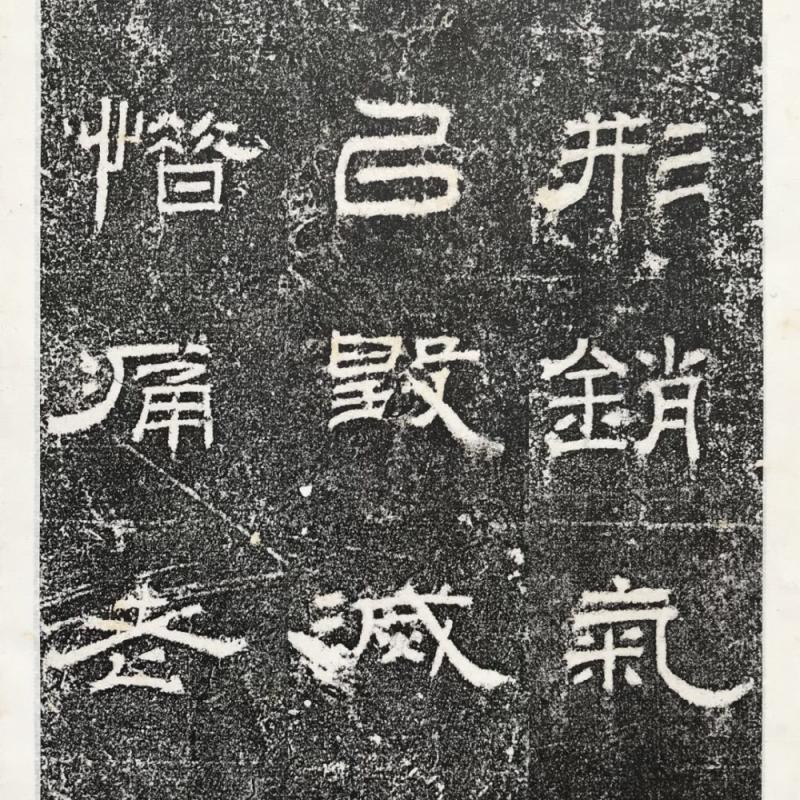 形銷氣
已毀滅
憯痛老